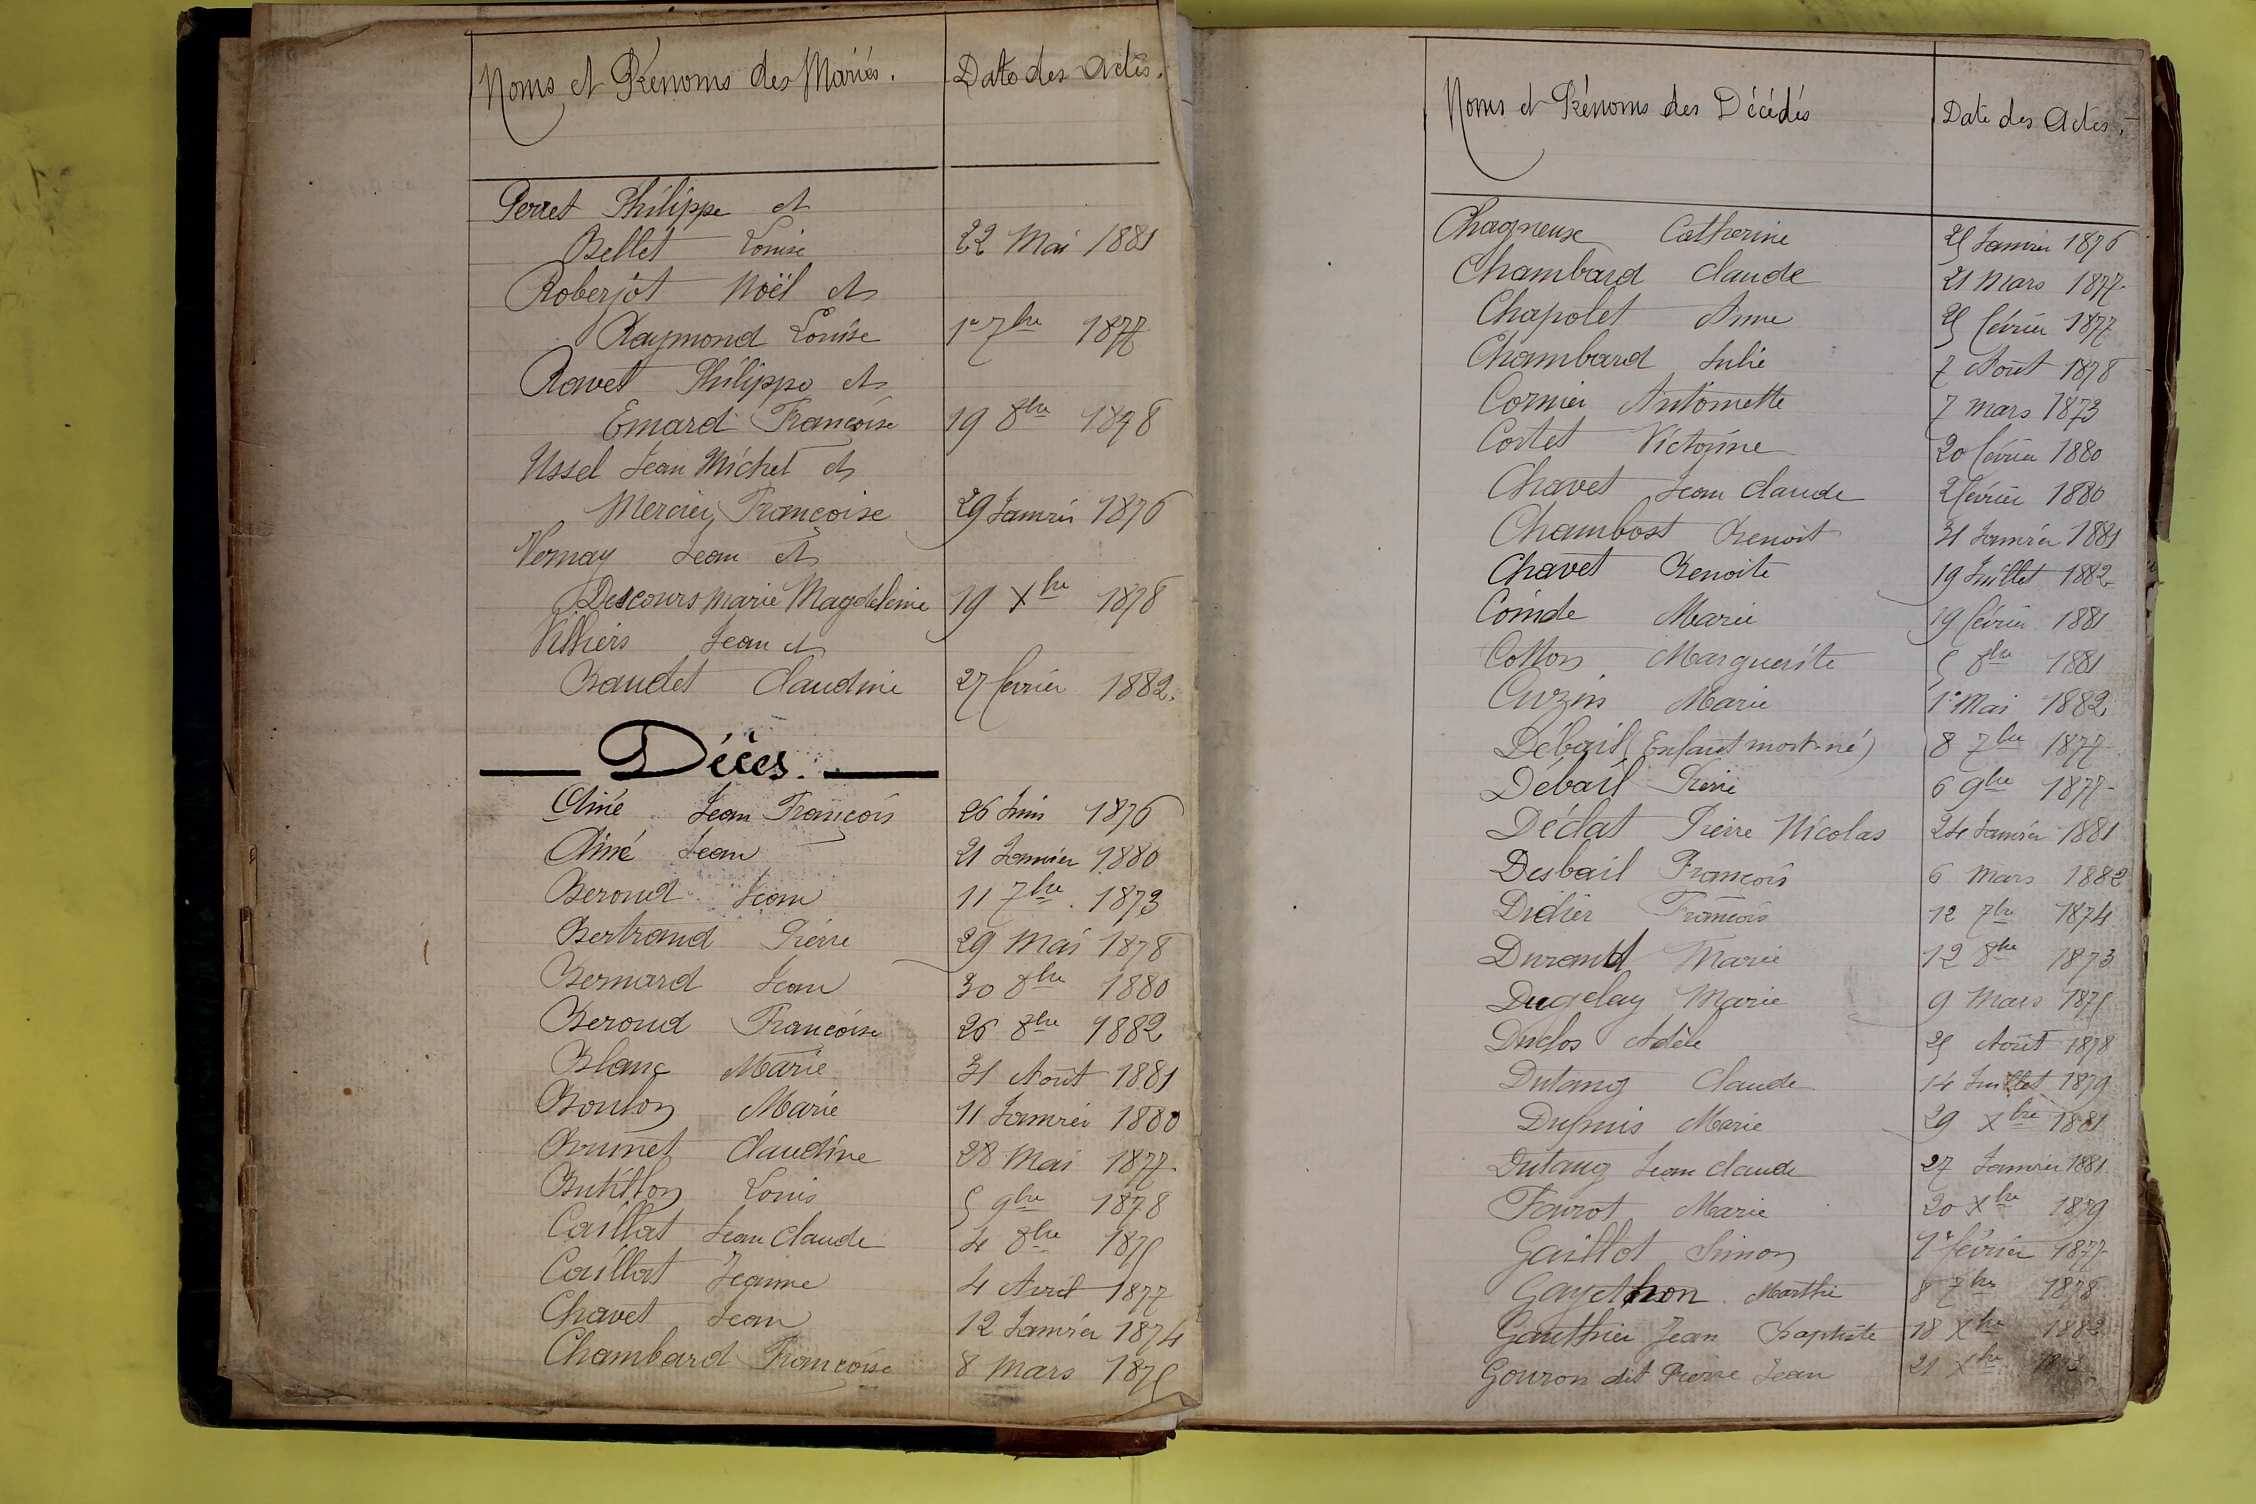 Noms et Prénoms des Mariés. Date des Actes.
Perret Philippe et
Bellet Louise 22 Mai 1881
Roberjot Noël et
Raymond Louise 1er 7bre 1877
Ravet Philippe et
Emard Françoise 19 8bre 1878
Ussel Jean Michel et
Mercier Françoise 29 Janvier 1876
Vernay Jean et
Descours Marie Magdeleine 19 Xbre 1878
Villiers Jean et
Baudet Claudine 27 février 1882.
Décès.
Aimé Jean François 26 Juin 1876
Aimé Jean 21 Janvier 1880
Beroud Jean 11 7bre. 1873
Bertrand Pierre 29 Mai 1878
Bernard Jean 30 8bre 1880
Beroud Françoise 26 8bre 1882
Blanc Marie 31 Août 1881
Boulon Marie 11 Janvier 1880
Brunet Claudine 28 Mai 1877
Butillon Louis 5 9bre 1878
Caillat Jean Claude 4 8bre 1875
Caillat Jeanne 4 Avril 1877
Chavet Jean 12 Janvier 1874
Chambard Françoise 8 Mars 1875
Noms et Prénoms des Décédés Date des Actes.
Chagneux Catherine 25 Janvier 1876
Chambard Claude 21 Mars 1877
Chapolet Anne 25 février 1877
Chambard Julie 7 Août 1878
Cornier Antoinette 7 mars 1873
Cortet Victorine 20 février 1880
Chavet Jean Claude 2 février 1880
Chambost Benoit 31 Janvier 1881
Chavet Benoite 19 Juillet 1882
Coinde Marie 19 février 1881
Cotton Marguerite 5 8bre 1881
Curzin Marie 1er Mai 1882
Débail (Enfant mort-né) 8 7bre 1877
Débail Pierre 6 9bre 1877
Déclat Pierre Nicolas 24 Janvier 1881
Desbail François 6 Mars 1882
Didier François 12 7bre 1874
Durand Marie 12 8bre 1873
Dugelay Marie 9 Mars 1875
Duclos Adèle 25 Août 1878
Dutang Claude 14 Juillet 1879
Dupuis Marie 29 Xbre 1881
Dutang Jean Claude 27 Janvier 1881
Favrot Marie 20 Xbre 1879
Gaillot Simon 1er février 1877
Gayethon Marthe 8 7bre 1878
Gauthier Jean Baptiste 18 Xbre 1882
Gouron dit Pierre Jean 21 Xbre